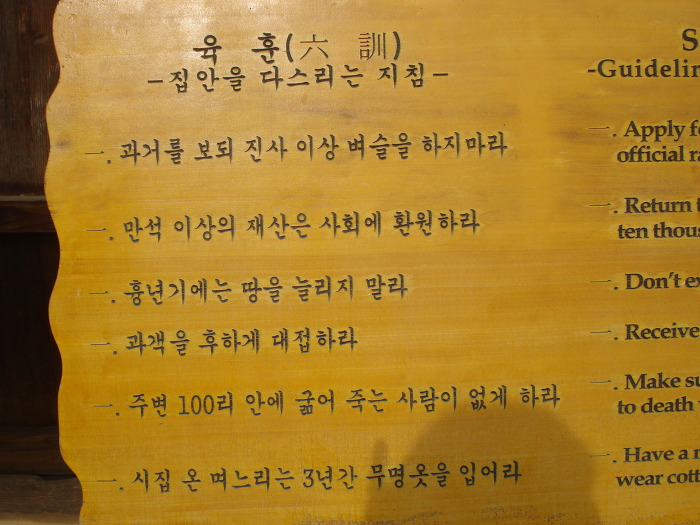 육 훈(六 訓)
-집안을 다스리는 지침-
一. 과거를 보되 진사 이상 벼슬을 하지마라
一. 만석 이상의 재산은 사회에 환원하라
一. 흉년기에는 땅을 늘리지 말라
一. 과객을 후하게 대접하라
一. 주변 100리 안에 굶어 죽는 사람이 없게 하라
一. 시집 온 며느리는 3년간 무명옷을 입어라
S
-Guidelin
一. Apply f
official ra
一. Return
ten thous
一. Don't ex
一. Receive
一. Make su
to death
一. Have a
wear cott